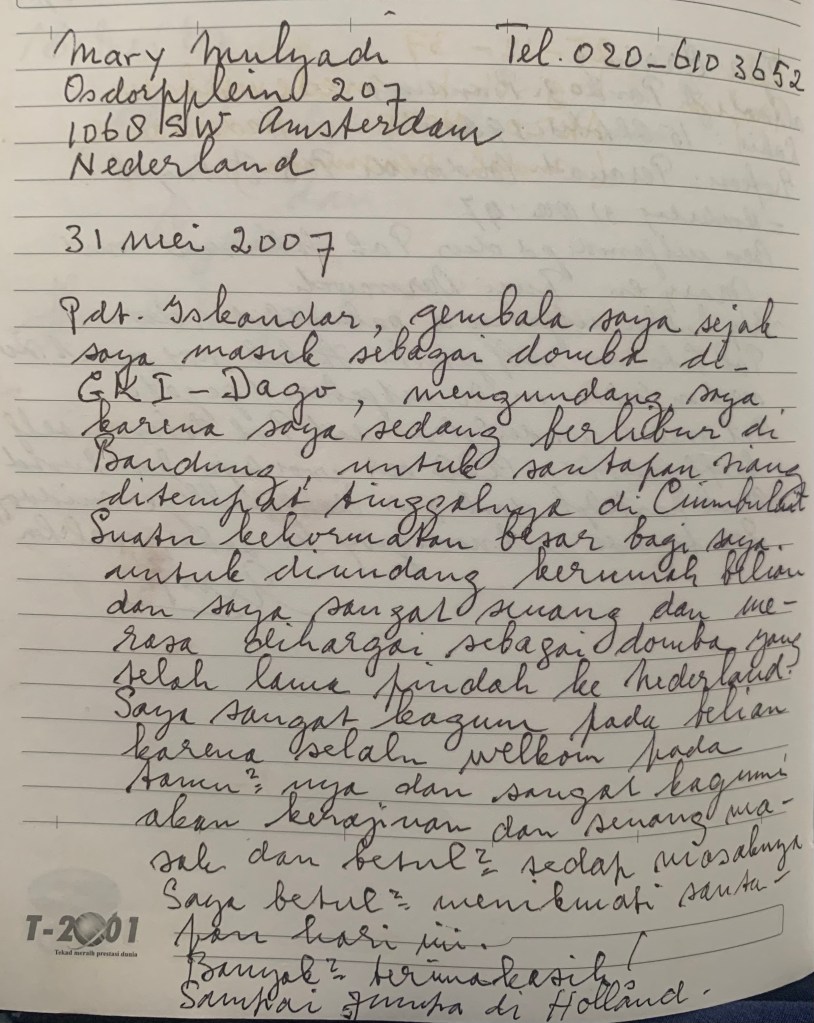 Mary Mulyadi Tel. 020-610 3652
Osdorpplein 207
1068 SW Amsterdam
Nederland
31 mei 2007
Pdt. Iskandar, gembala saya sejak
saya masuk sebagai domba di-
GKI-Dago, mengundang saya
karena saya sedang berlibur di
Bandung, untuk santapan siang
ditempat tinggalnya di Ciumbuleit
Suatu kehormatan besar bagi saya
untuk diundang kerumah beliau
dan saya sangat senang dan me-
rasa dihargai sebagai domba yang
telah lama pindah ke Nederland.
Saya sangat kagum pada beliau
karena selalu welkom pada
tamu²nya dan sangat kagumi
akan kerajinan dan senang ma-
sak dan betul² sedap masaknya
Saya betul² menikmati santa-
pan hari ini.
Banyak² terimakasih!
Sampai jumpa di Holland.
T-2001
Tekad meraih prestasi dunia